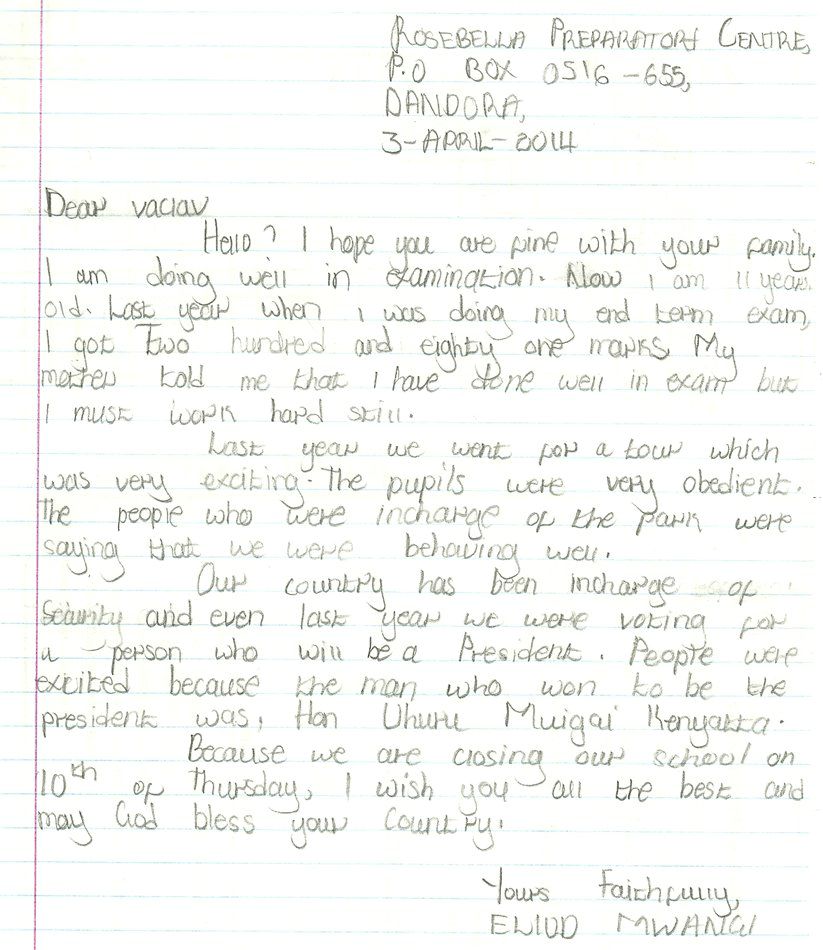 ROSEBELLA PREPARATORY CENTRE,
P.O BOX 0516-655,
DANDORA,
3-APRIL-2014
Dear vaclav
Hello? I hope you are fine with your family.
I am doing well in examination. Now I am 11 years
old. Last year when I was doing my end term exam,
I got Two hundred and eighty one marks. My
mother told me that I have done well in exam but
I must work hard still.
Last year we went for a tour which
was very exciting. The pupils were very obedient.
The people who were incharge of the park were
saying that we were behaving well.
Our country has been incharge of
Security and even last year we were voting for
a person who will be a President. People were
excited because the man who won to be the
president was, Hon Uhuru Muigai Kenyatta.
Because we are closing our school on
10th of Thursday, I wish you all the best and
may God bless your Country.
Yours Faithfully,
ELIUD MWANGI